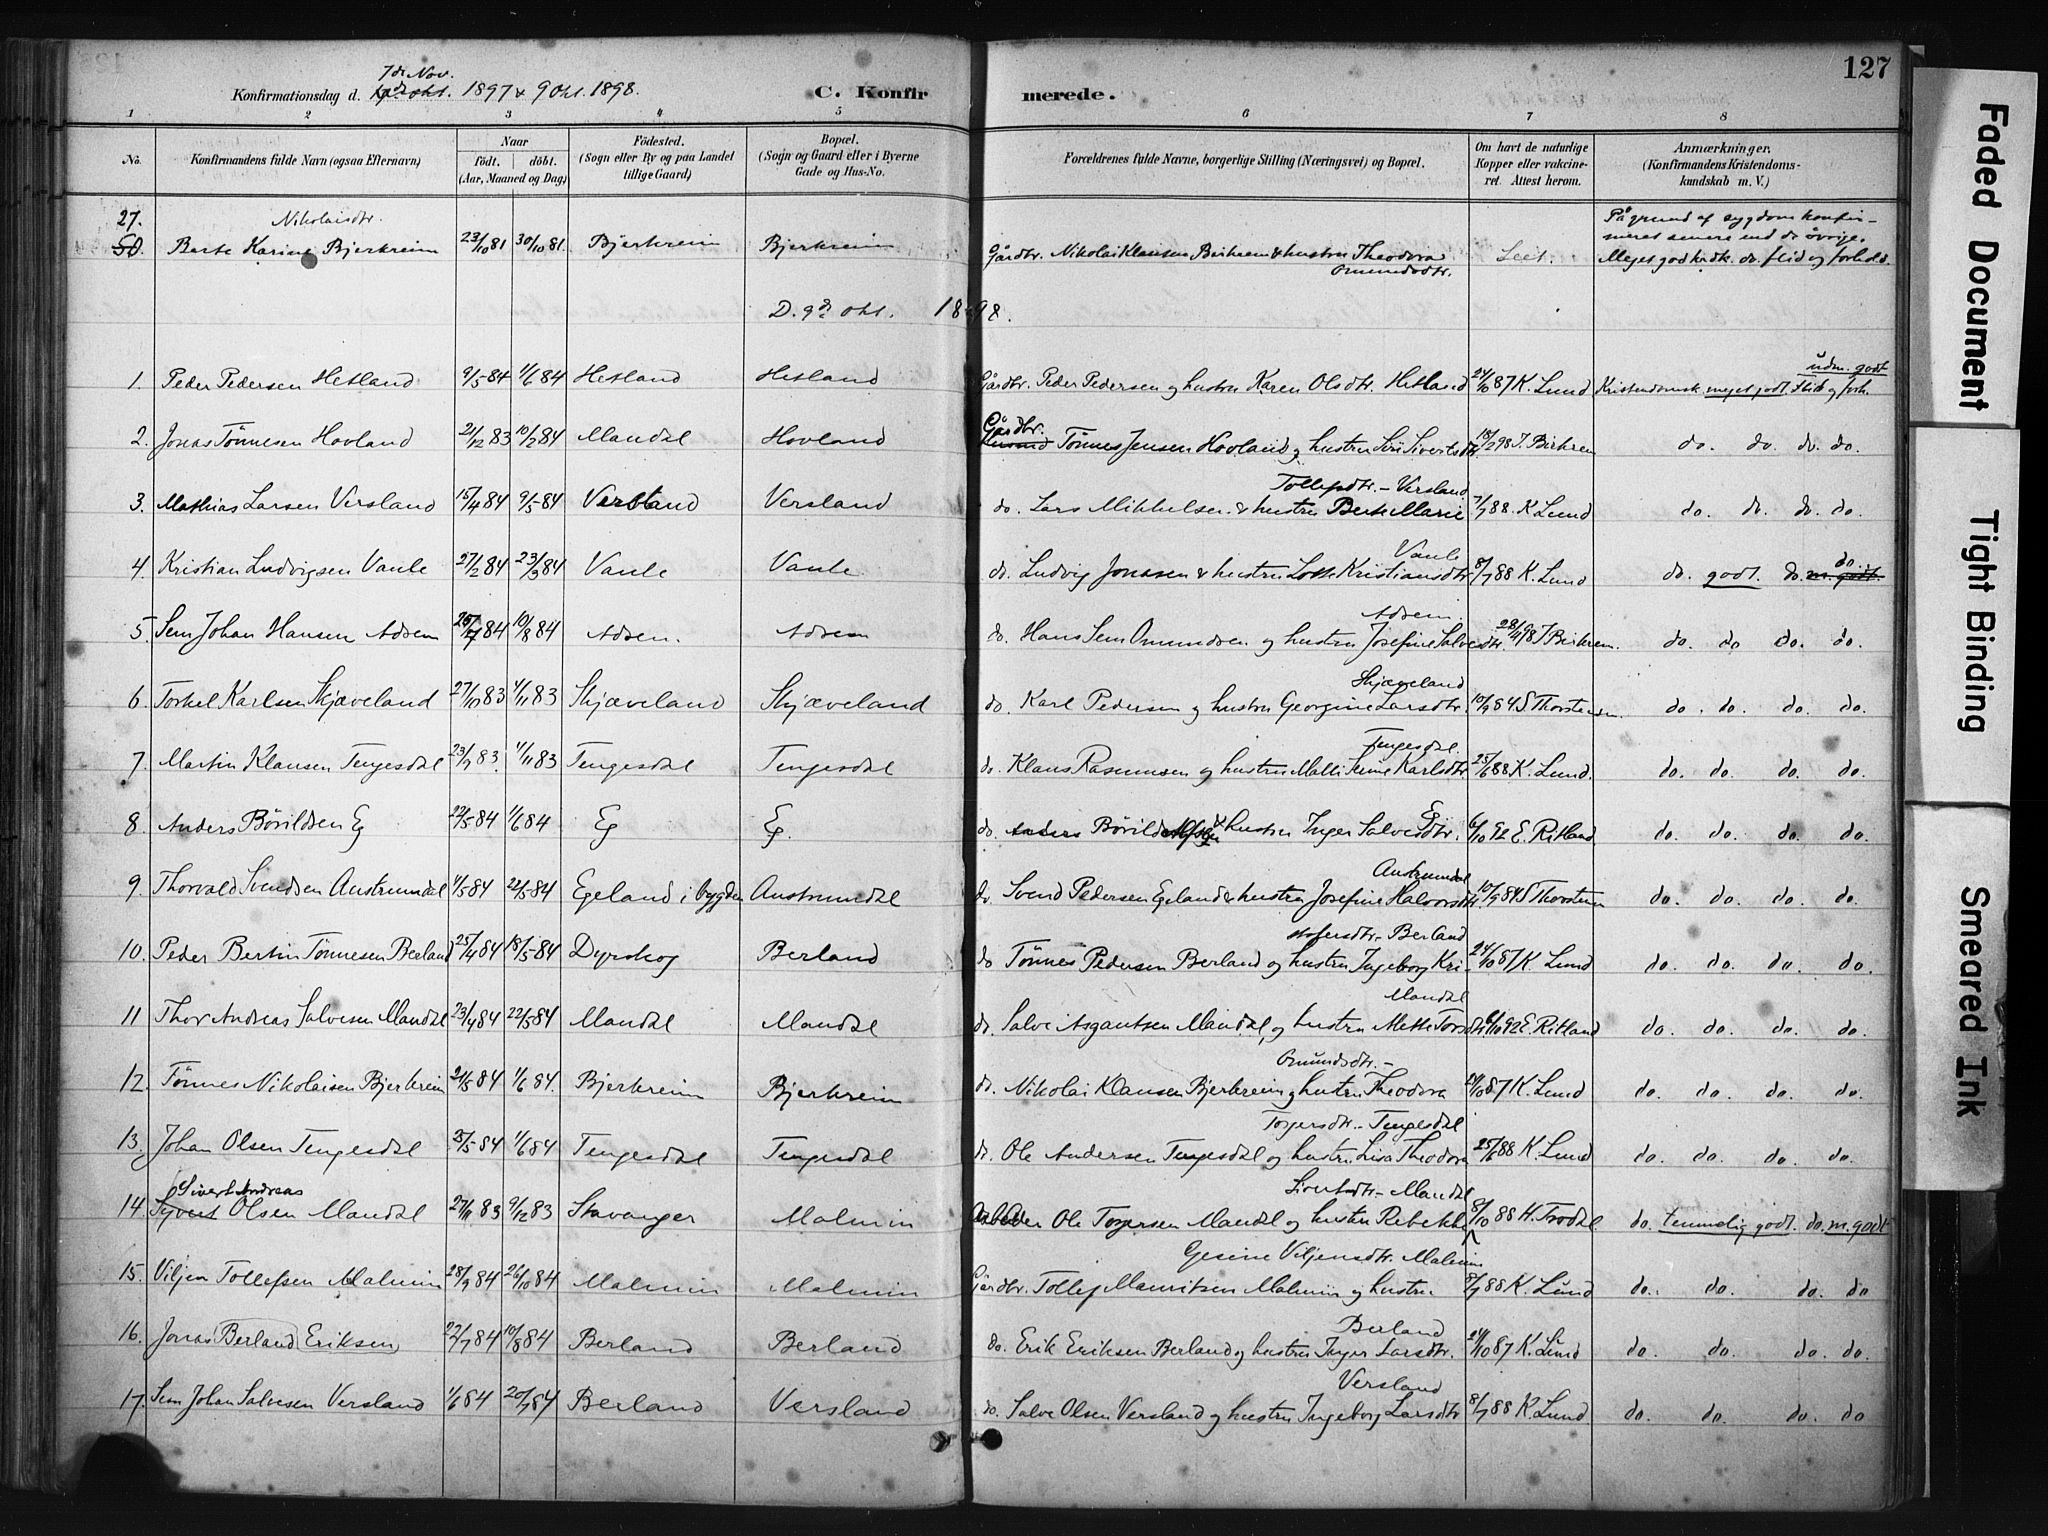 127
7de Nov.
Konfirmationsdag d. 1897 & 9 Okt. 1898.
C. Konfirmerede.
1 2 3 4 5 6 7 8
No.
Konfirmandens fulde Navn (ogsaa Efternavn)
Naar
födt. döbt.
(Aar, Maaned og Dag)
Födested.
(Sogn eller By og paa Landet
tillige Gaard)
Bopæl.
(Sogn og Gaard eller i Byerne
Gade og Hus-No.
Forældrenes fulde Navne, borgerlige Stilling (Næringsvei) og Bopæl.
Om havt de naturlige
Kopper eller vakcine-
ret. Attest herom.
Anmærkninger.
(Konfirmandens Kristendoms-
kundskab m. V.)
27. Nikolaisdtr. På grund af sygdom konfir-
meret senere end de øvrige.
Berte Karine Bjerkreim 23/10 81 30/10 81. Bjerkreim Bjerkreim Gårdbr. Nikolai Klausen Birkrem & hustru Theodora Seet. Meget god krdk. do. flid og forhold.
Omundsdtr.
D. 9de Okt. 1898.
udm. godt
1. Peder Pedersen Hetland 9/5 84 1/6 84 Hetland Hetland Gårdbr. Peder Pedersen og hustru Karen Olsdtr. Hetland 24/10 87 K. Lund Kristendomsk. meget godt. Flid og forh.
Gårdbr.
2. Jonas Tönnesen Hovland 21/12 83 10/2 84 Mandal Hovland Tönnes Jensen Hovland og hustru Siri Sivertsdtr. 18/2 98 T. Birkrem do. do. do. do.
Tollefsdtr. - Versland
3. Mathias Larsen Versland 15/4 84 9/5 84 Versland Versland do. Lars Mikkelsen & hustru Berte Marie 7/7 88. K Lund do. do. do. do.
Vaule do.
4. Kristian Ludvigsen Vaule 27/2 84 23/3 84 Vaule Vaule do. Ludvig Jonasen & hustru Lott. Kristiansdtr. 8/7 88 K. Lund do. godt. do. m. godt.
Adsem.
5. Sem Johan Hansen Adsem 25/7 84 10/8 84 Adsem. Adsem do. Hans Sem Omundsen og hustru Josefine Salvesdtr. 28/4 98 T Birkrem. do. do do. do.
Skjæveland
6. Torkel Karlsen Skjæveland 27/10 83 4/11 83 Skjæveland Skjæveland do. Karl Pedersen og hustru Georgine Larsdtr. 10/9 84 S Thorstensen. do. do. do. do.
Tengesdal.
7. Martin Klausen Tengesdal 23/9 83. 4/11 83 Tengesdal Tengesdal do. Klaus Rasmussen og hustru Malli Serine Karlsdtr 25/6 88 K. Lund. do. do. do. do.
Eg
8. Anders Börildsen Eg 22/5 84 1/6 84 Eg Eg. do. Anders Börild & hustru Inger Salvesdtr. 6/10 92 E. Ritland do. do. do. do.
Austrumdal
9. Thorvald Svendsen Austrumdal 4/5 84 22/5 84 Egeland i bygden Austrumdal do. Svend Pedersen Egeland & hustru Josefine Halvorsdtr. 10/9 84 S Thorstensen do. do. do. do.
stofersdtr. Berland
10. Peder Bertin Tönnesen Berland 25/4 84 18/5 84 Dyrskog Berland do Tönnes Pedersen Berland og hustru Ingeborg Kri- 24/10 87 K. Lund do. do. do. do.
Mandal
11 Thor Andreas Salvesen Mandal 23/4 84 22/5 84 Mandal Mandal do. Salve Asgautsen Mandal, og hustru Mette Torsdtr. 6/10 92 E. Ritland do. do. do. do.
Omundsdtr. -
12. Tönnes Nikolaisen Bjerkreim 21/5 84 1/6 84. Bjerkreim Bjerkreim do. Nikolai Klausen Bjerkreim og hustru Theodora 24/10 87 K. Lund do. do. do. do.
Torgersdtr. - Tengesdal
13. Johan Olsen Tengesdal 25/5 84 1/6 84 Tengesdal Tengesdal do. Ole Andersen Tengesdal og hustru Lisa Theodora 25/6 88 K. Lund do. do. do. do.
Sivert Andreas Sivertsdtr. - Mandal
14. Syvert Olsen Mandal 27/11 83 9/12 83 Stavanger Malmin Arbeider Ole Torgersen Mandal og hustru Rebekka 8/10 88 H. Trodal. do. temmelig godt. do. m. godt
Gesine Viljensdtr. Malmin
15. Viljen Tollefsen Malmin 28/9 84 26/10 84 Malmin Malmin Gårdbr. Tollef Mauritsen Malmin og hustru 8/7 88 K. Lund do. do. do. do
Berland
16. Jonas Berland Eriksen 22/7 84 10/8 84 Berland Berland do. Erik Eriksen Berland og hustru Inger Larsdtr. 24/10 87 K. Lund do. do. do. do.
Versland
17. Sem Johan Salvesen Versland 1/6 84 20/7 84 Berland Versland do. Salve Olsen Versland og hustru Ingeborg Larsdtr 8/7 88 K. Lund do. do. do. do
Faded Document
Tight Binding
Smeared Ink